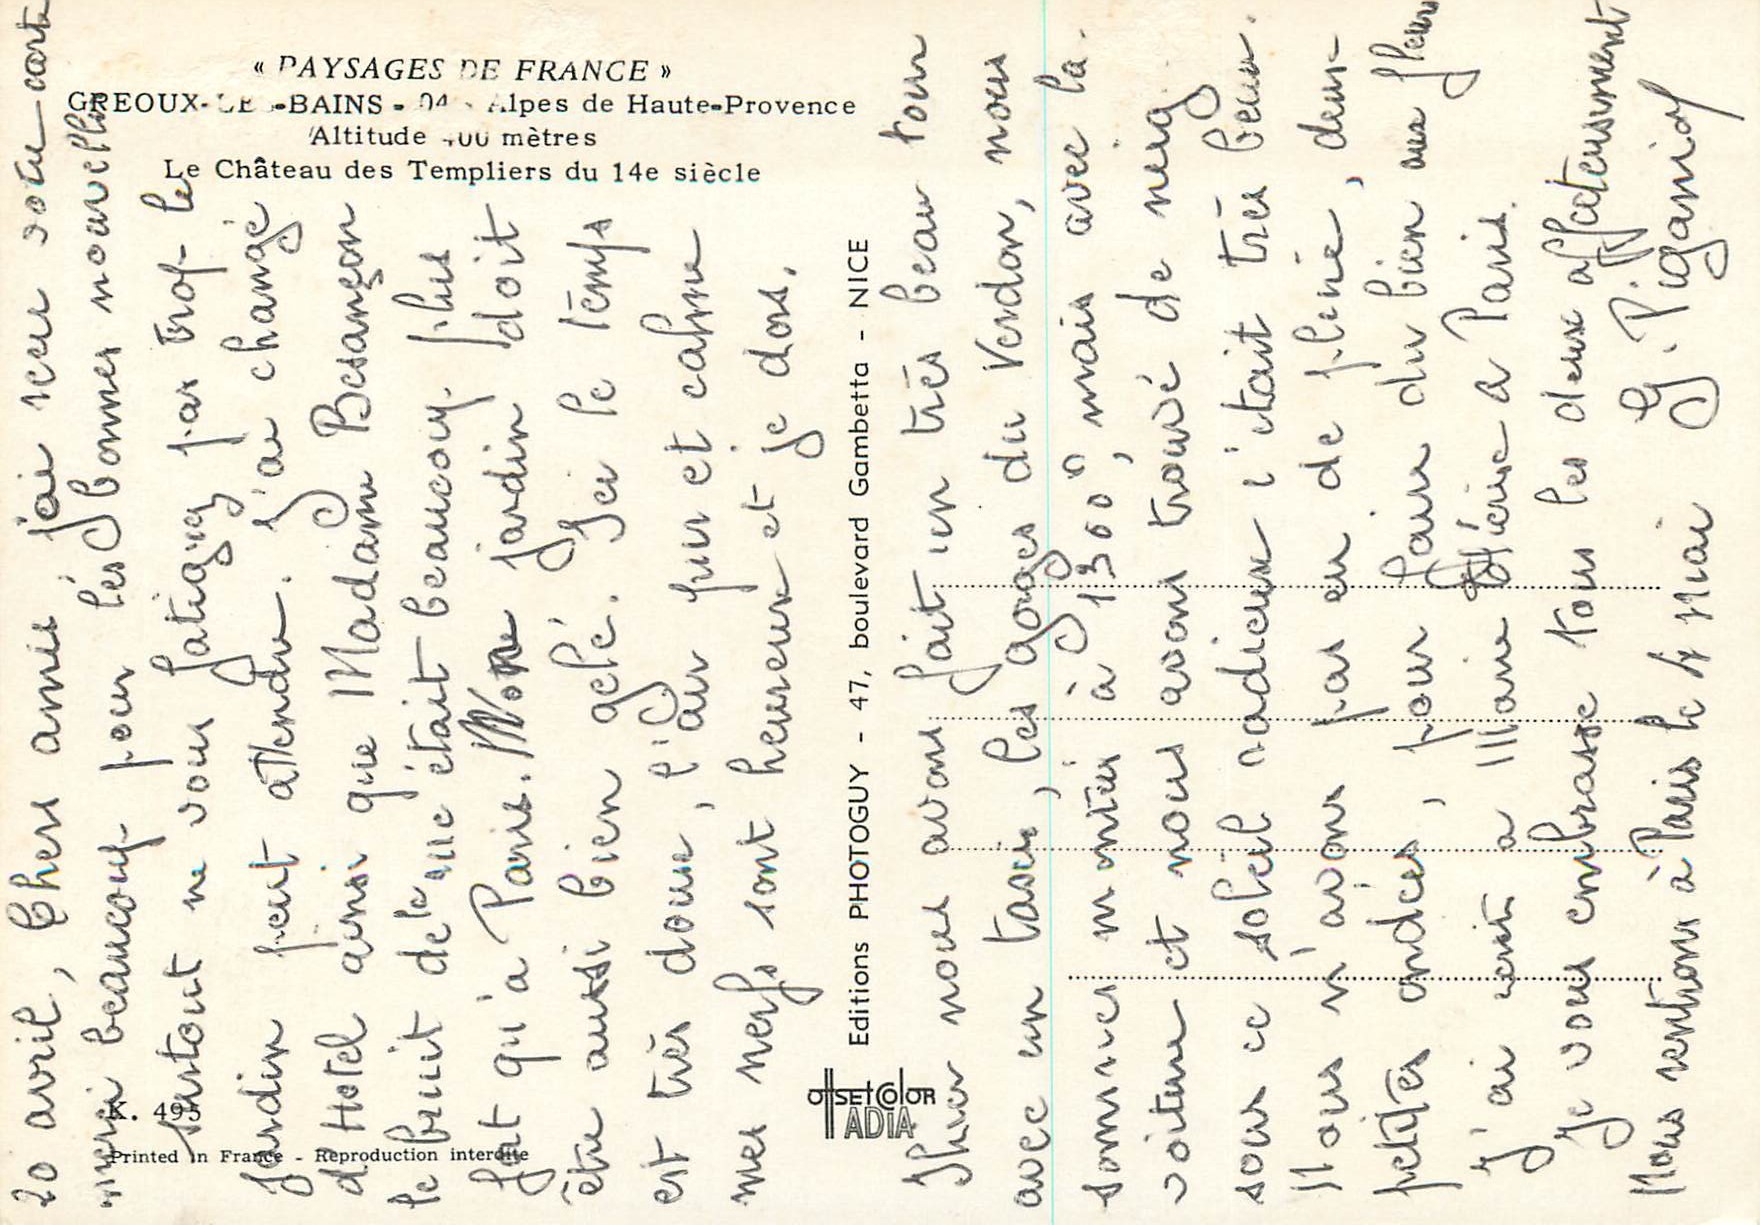 « PAYSAGES DE FRANCE »
GREOUX-LES-BAINS - 04 - Alpes de Haute-Provence
Altitude 400 mètres
Le Château des Templiers du 14e siècle
20 avril, Chers amis j'ai reçu votre carte
merci beaucoup pour les bonnes nouvelles
surtout ne vous fatiguez pas trop le
jardin peut attendre. J'ai changé
d'Hotel ainsi que Madame Besançon
le bruit de la rue était beaucoup plus
fort qu'a Paris. Votre jardin doit
être aussi bien gelé. Ici le temps
est très doux, l'air pur et calme
mes nerfs sont heureux et je dors.
Hier nous avons fait un très beau tour
avec un taxi, les gorges du Verdon, nous
sommes montés à 1300m, mais avec la
voiture et nous avons trouvé de neig
sous ce soleil radieux c'était très beau.
Nous n'avons pas eu de pluie, deux
petites ondées, pour faire du bien aux fleurs
J'ai écrit a Marie Thérèse a Paris.
Je vous embrasse tous les deux affectueusement
Nous rentrons à Paris le 4 mai G. Piganiol
Editions PHOTOGUY - 47, boulevard Gambetta - NICE
offset color
ADIA
K. 495
Printed in France - Reproduction interdite